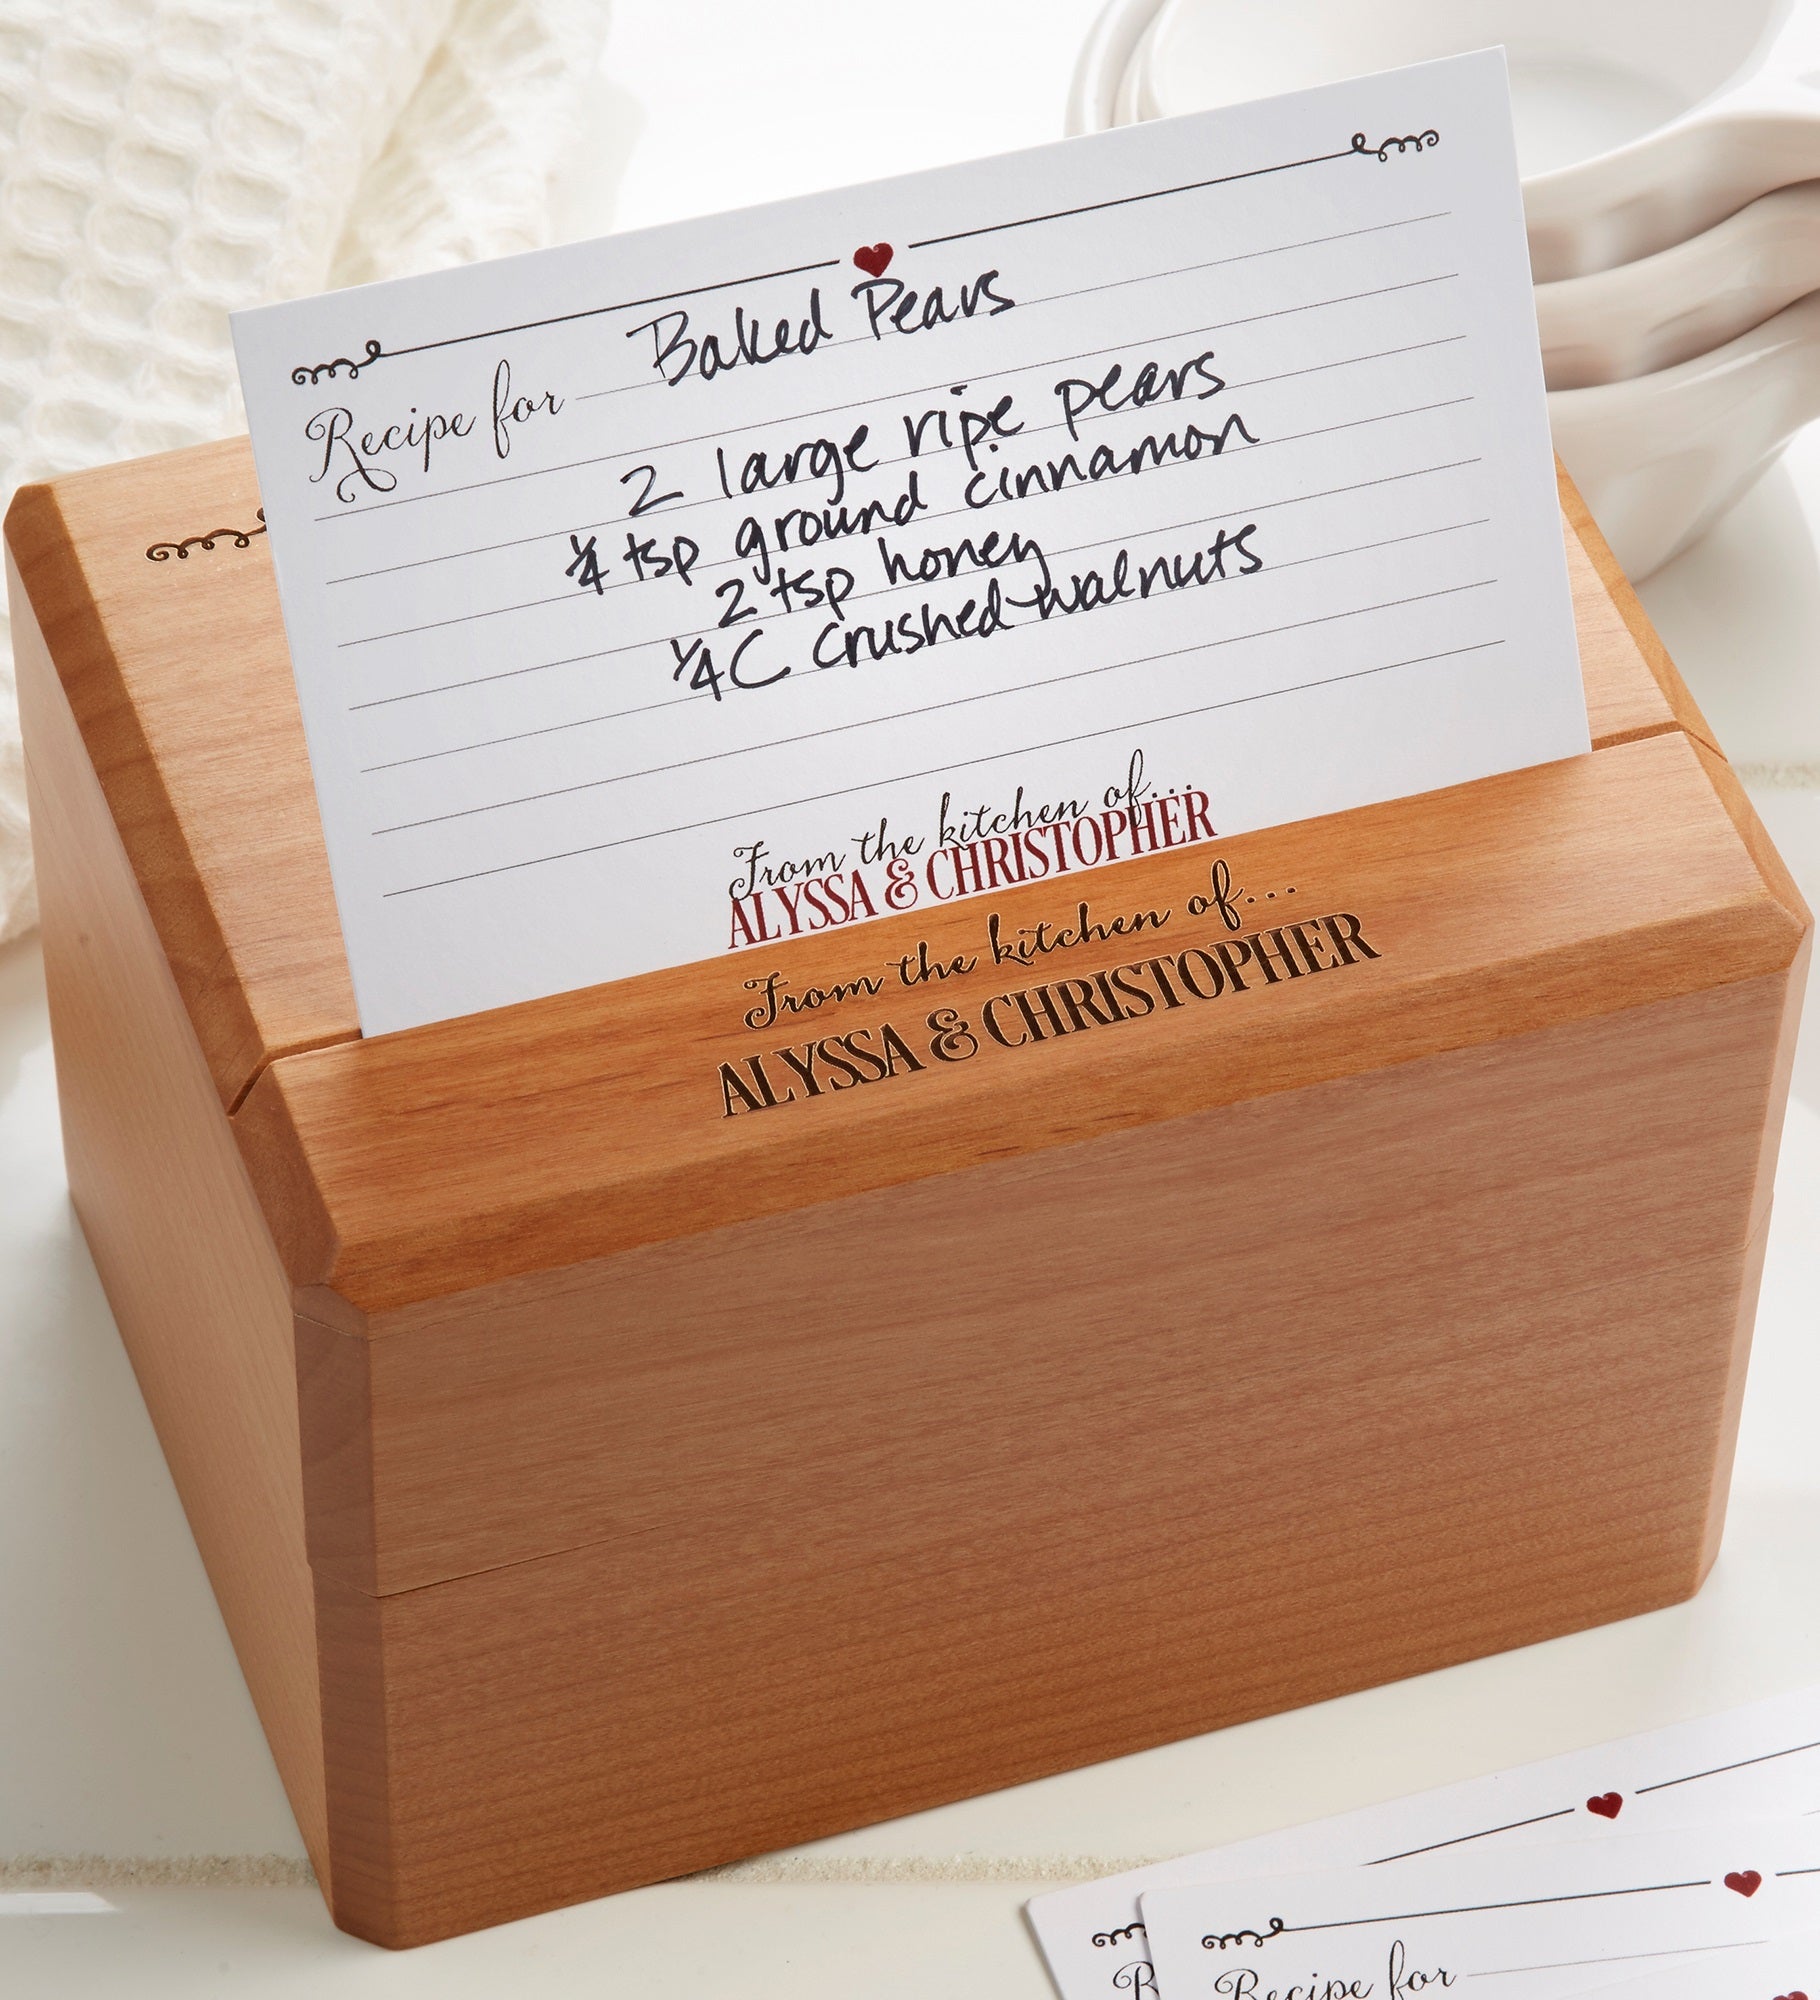 Recipe for Baked Pears
2 large ripe pears
¼ tsp ground cinnamon
2 tsp honey
¼ C crushed walnuts
From the kitchen of...
ALYSSA & CHRISTOPHER
From the kitchen of...
ALYSSA & CHRISTOPHER
Recipe for